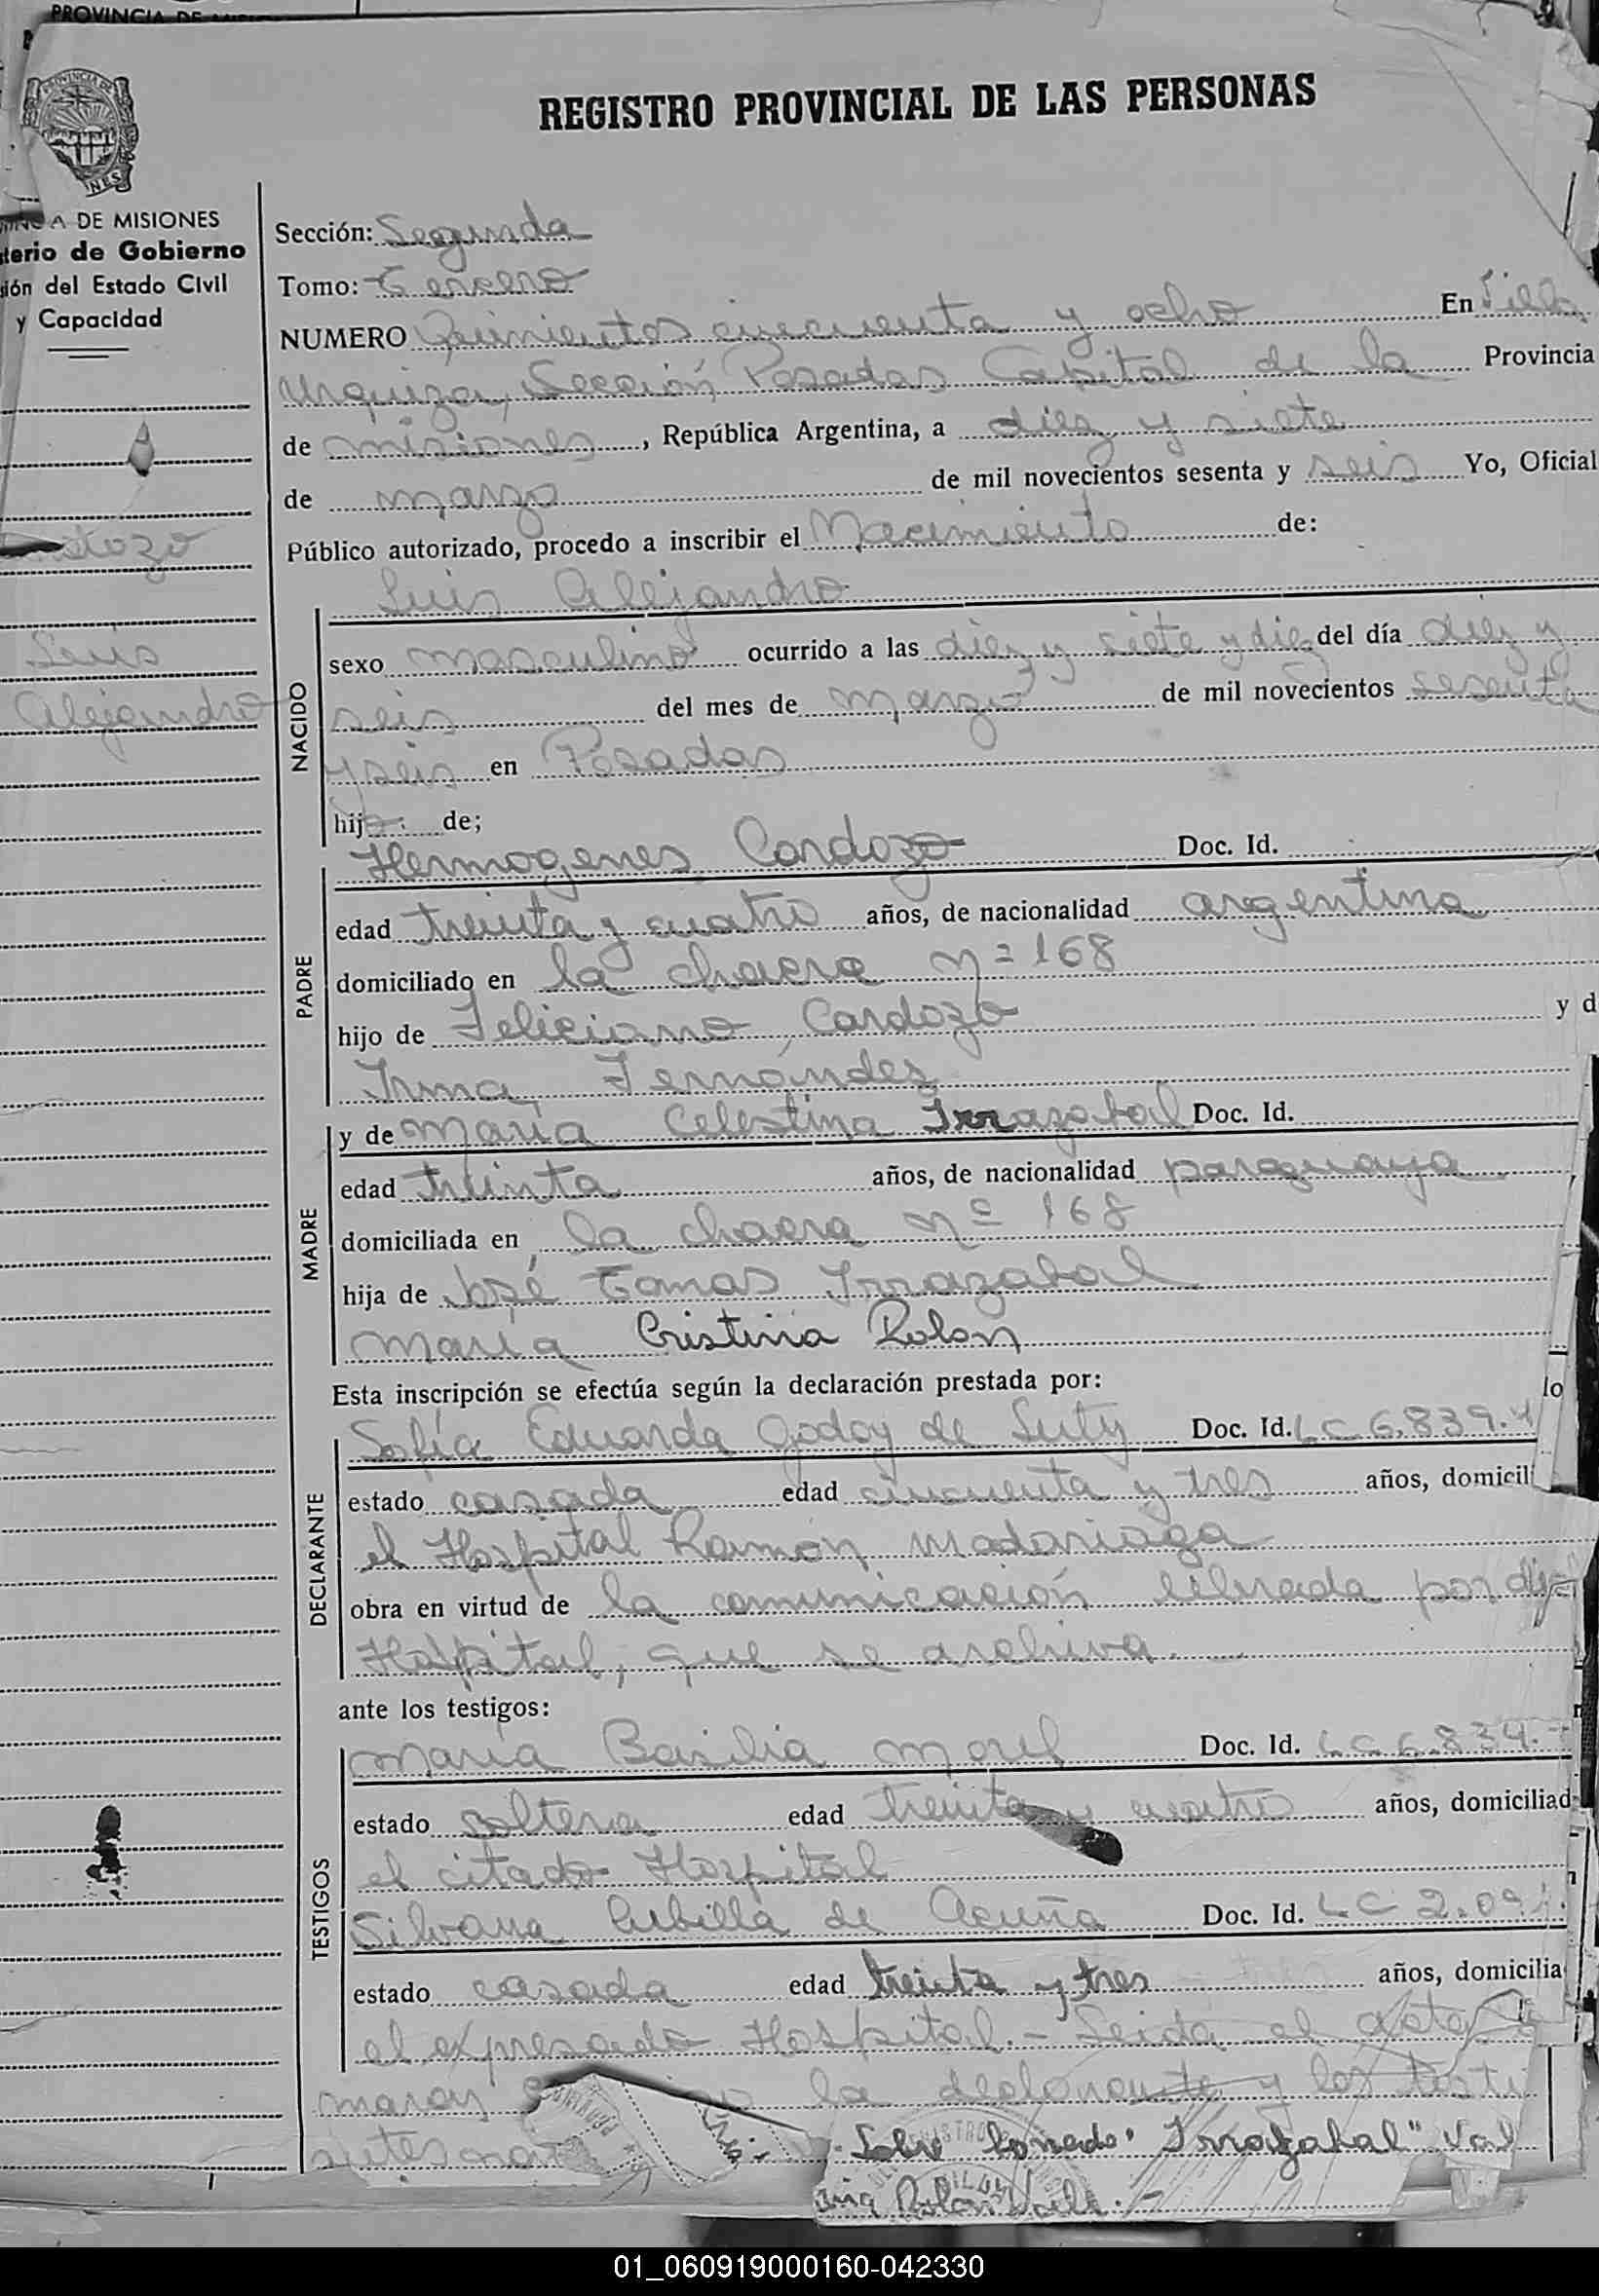 PROVINCIA DE
REGISTRO PROVINCIAL DE LAS PERSONAS
A DE MISIONES
terio de Gobierno
ión del Estado Civil
y Capacidad
Sección: Segunda
Tomo: Tercero
NUMERO Quinientos cincuenta y ocho En Villa
Urquiza, Sección Posadas Capital de la Provincia
de misiones, República Argentina, a diez y siete
de marzo de mil novecientos sesenta y seis Yo, Oficial
Público autorizado, procedo a inscribir el Nacimiento de:
Luis Alejandro
Luis
Alejandro
NACIDO
sexo masculino ocurrido a las diez y siete y diez del día diez y
seis del mes de marzo de mil novecientos sesenta
y seis en Posadas
hijo de;
PADRE
Hermogenes Cardozo Doc. Id.
edad treinta y cuatro años, de nacionalidad argentina
domiciliado en la chacra nº 168
hijo de Feliciano Cardozo y d
Irma Fernández
MADRE
y de María Celestina Irrazabal Doc. Id.
edad treinta años, de nacionalidad paraguaya
domiciliada en la chacra nº 168
hija de José Tomas Irrazabal
María Cristina Rolon
Esta inscripción se efectúa según la declaración prestada por:
DECLARANTE
Sofía Eduarda Godoy de Doc. Id. LC 6.839.
estado casada edad cincuenta y tres años, domicili
el Hospital Ramón Madariaga
obra en virtud de la comunicación librada por
Hospital, que se archiva.
ante los testigos:
TESTIGOS
María Basilia Morel Doc. Id. LC 6.834.
estado soltera edad treinta y cuatro años, domiciliad
el citado Hospital
Silvana Cubilla de Acuña Doc. Id. LC 2.09
estado casada edad treinta y tres años, domicilia
el expresado Hospital.- Leida el acta
la declarante y los testi
Sobre borrado "Irrazabal" Val
Rolon Vale.-
01_060919000160-042330